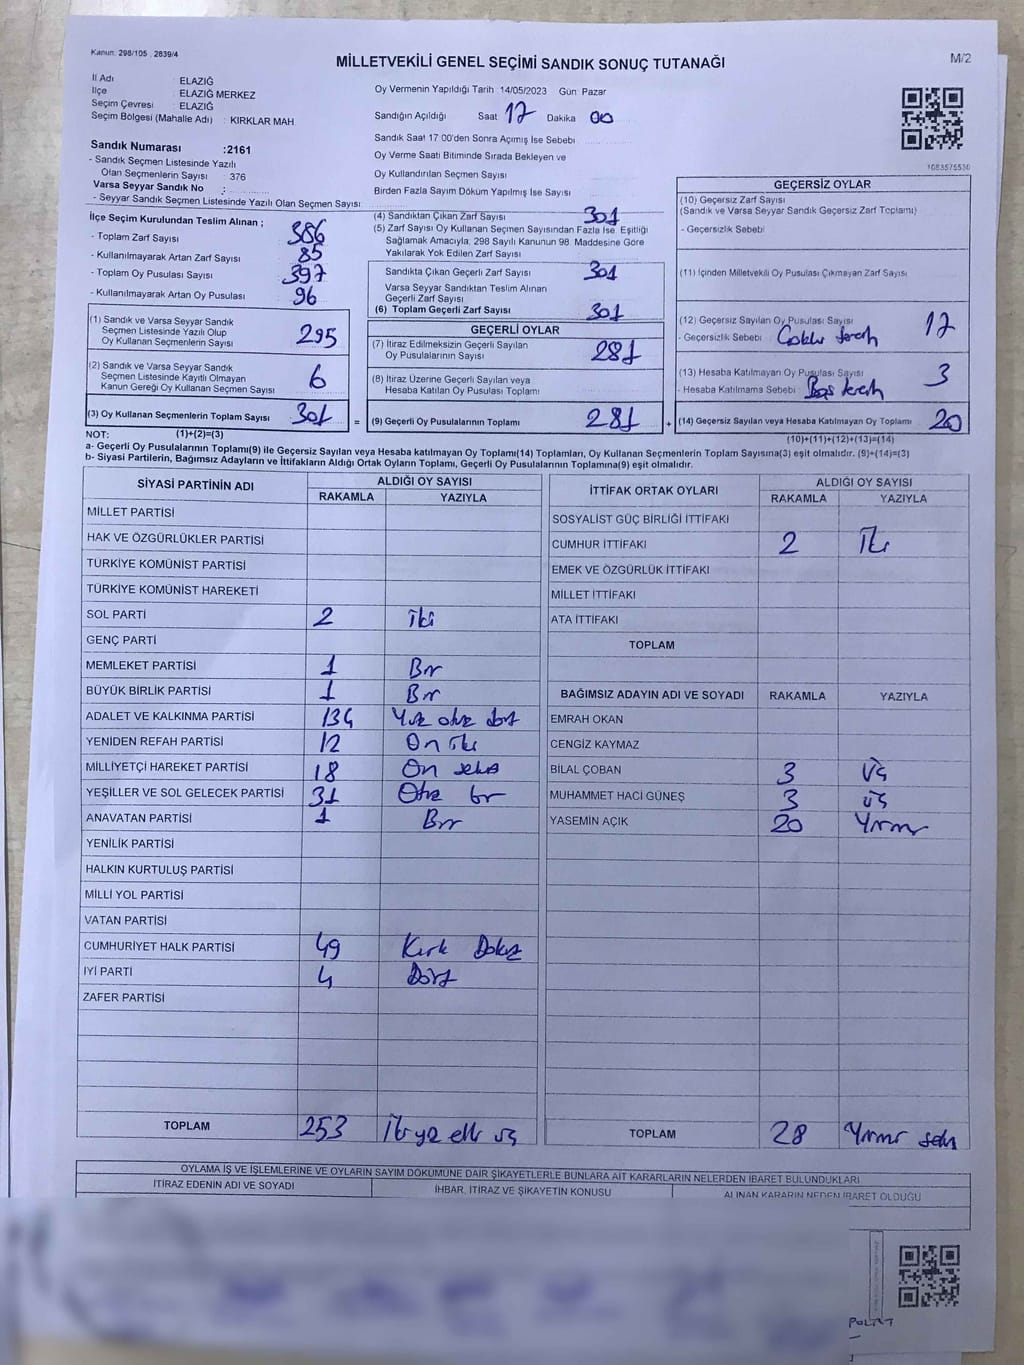 Kanun: 298/105 , 2839/4
MİLLETVEKİLİ GENEL SEÇİMİ SANDIK SONUÇ TUTANAĞI
M/2
İl Adı : ELAZIĞ
İlçe : ELAZIĞ MERKEZ
Seçim Çevresi : ELAZIĞ
Seçim Bölgesi (Mahalle Adı) : KIRKLAR MAH
Sandık Numarası :2161
- Sandık Seçmen Listesinde Yazılı
Olan Seçmenlerin Sayısı : 376
Varsa Seyyar Sandık No :
- Seyyar Sandık Seçmen Listesinde Yazılı Olan Seçmen Sayısı
Oy Vermenin Yapıldığı Tarih :14/05/2023 Gün: Pazar
Sandığın Açıldığı Saat 17 Dakika 00
Sandık Saat 17:00'den Sonra Açımış İse Sebebi
Oy Verme Saati Bitiminde Sırada Bekleyen ve
Oy Kullandırılan Seçmen Sayısı
Birden Fazla Sayım Döküm Yapılmış İse Sayısı
1083575530
İlçe Seçim Kurulundan Teslim Alınan ;
- Toplam Zarf Sayısı 386
- Kullanılmayarak Artan Zarf Sayısı 85
- Toplam Oy Pusulası Sayısı 397
- Kullanılmayarak Artan Oy Pusulası 96
(1) Sandık ve Varsa Seyyar Sandık
Seçmen Listesinde Yazılı Olup
Oy Kullanan Seçmenlerin Sayısı 295
(2) Sandık ve Varsa Seyyar Sandık
Seçmen Listesinde Kayıtlı Olmayan
Kanun Gereği Oy Kullanan Seçmen Sayısı 6
(3) Oy Kullanan Seçmenlerin Toplam Sayısı 301
(4) Sandıktan Çıkan Zarf Sayısı 301
(5) Zarf Sayısı Oy Kullanan Seçmen Sayısından Fazla İse, Eşitliği
Sağlamak Amacıyla, 298 Sayılı Kanunun 98. Maddesine Göre
Yakılarak Yok Edilen Zarf Sayısı
Sandıkta Çıkan Geçerli Zarf Sayısı 301
Varsa Seyyar Sandıktan Teslim Alınan
Geçerli Zarf Sayısı
(6) Toplam Geçerli Zarf Sayısı 301
GEÇERLİ OYLAR
(7) İtiraz Edilmeksizin Geçerli Sayılan
Oy Pusulalarının Sayısı 281
(8) İtiraz Üzerine Geçerli Sayılan veya
Hesaba Katılan Oy Pusulası Toplamı
= (9) Geçerli Oy Pusulalarının Toplamı 281
GEÇERSİZ OYLAR
(10) Geçersiz Zarf Sayısı
(Sandık ve Varsa Seyyar Sandık Geçersiz Zarf Toplamı)
- Geçersizlik Sebebi
(11) İçinden Milletvekili Oy Pusulası Çıkmayan Zarf Sayısı
(12) Geçersiz Sayılan Oy Pusulası Sayısı 17
- Geçersizlik Sebebi
(13) Hesaba Katılmayan Oy Pusulası Sayısı 3
- Hesaba Katılmama Sebebi Boş
+ (14) Geçersiz Sayılan veya Hesaba Katılmayan Oy Toplamı 20
NOT: (1)+(2)=(3)
(10)+(11)+(12)+(13)=(14)
a- Geçerli Oy Pusulalarının Toplamı(9) ile Geçersiz Sayılan veya Hesaba katılmayan Oy Toplamı(14) Toplamları, Oy Kullanan Seçmenlerin Toplam Sayısına(3) eşit olmalıdır. (9)+(14)=(3)
b- Siyasi Partilerin, Bağımsız Adayların ve İttifakların Aldığı Ortak Oyların Toplamı, Geçerli Oy Pusulalarının Toplamına(9) eşit olmalıdır.
SİYASİ PARTİNİN ADI ALDIĞI OY SAYISI
RAKAMLA YAZIYLA
MİLLET PARTİSİ
HAK VE ÖZGÜRLÜKLER PARTİSİ
TÜRKİYE KOMÜNİST PARTİSİ
TÜRKİYE KOMÜNİST HAREKETİ
SOL PARTİ 2 iki
GENÇ PARTİ
MEMLEKET PARTİSİ 1 Bir
BÜYÜK BİRLİK PARTİSİ 1 Bir
ADALET VE KALKINMA PARTİSİ 134 Yüz otuz dört
YENİDEN REFAH PARTİSİ 12 On iki
MİLLİYETÇİ HAREKET PARTİSİ 18 On sekiz
YEŞİLLER VE SOL GELECEK PARTİSİ 31 Otuz bir
ANAVATAN PARTİSİ 1 Bir
YENİLİK PARTİSİ
HALKIN KURTULUŞ PARTİSİ
MİLLİ YOL PARTİSİ
VATAN PARTİSİ
CUMHURİYET HALK PARTİSİ 49 Kırk Dokuz
İYİ PARTİ 4 Dört
ZAFER PARTİSİ
TOPLAM 253 İki yüz elli üç
İTTİFAK ORTAK OYLARI ALDIĞI OY SAYISI
RAKAMLA YAZIYLA
SOSYALİST GÜÇ BİRLİĞİ İTTİFAKI
CUMHUR İTTİFAKI 2 İki
EMEK VE ÖZGÜRLÜK İTTİFAKI
MİLLET İTTİFAKI
ATA İTTİFAKI
TOPLAM
BAĞIMSIZ ADAYIN ADI VE SOYADI RAKAMLA YAZIYLA
EMRAH OKAN
CENGİZ KAYMAZ
BİLAL ÇOBAN 3 Üç
MUHAMMET HACİ GÜNEŞ 3 üç
YASEMİN AÇIK 20 Yirmi
TOPLAM 28 Yirmi sekiz
OYLAMA İŞ VE İŞLEMLERİNE VE OYLARIN SAYIM DÖKÜMÜNE DAİR ŞİKAYETLERLE BUNLARA AİT KARARLARIN NELERDEN İBARET BULUNDUKLARI
İTİRAZ EDENİN ADI VE SOYADI İHBAR, İTİRAZ VE ŞİKAYETİN KONUSU ALINAN KARARIN NEDEN İBARET OLDUĞU
POLAT